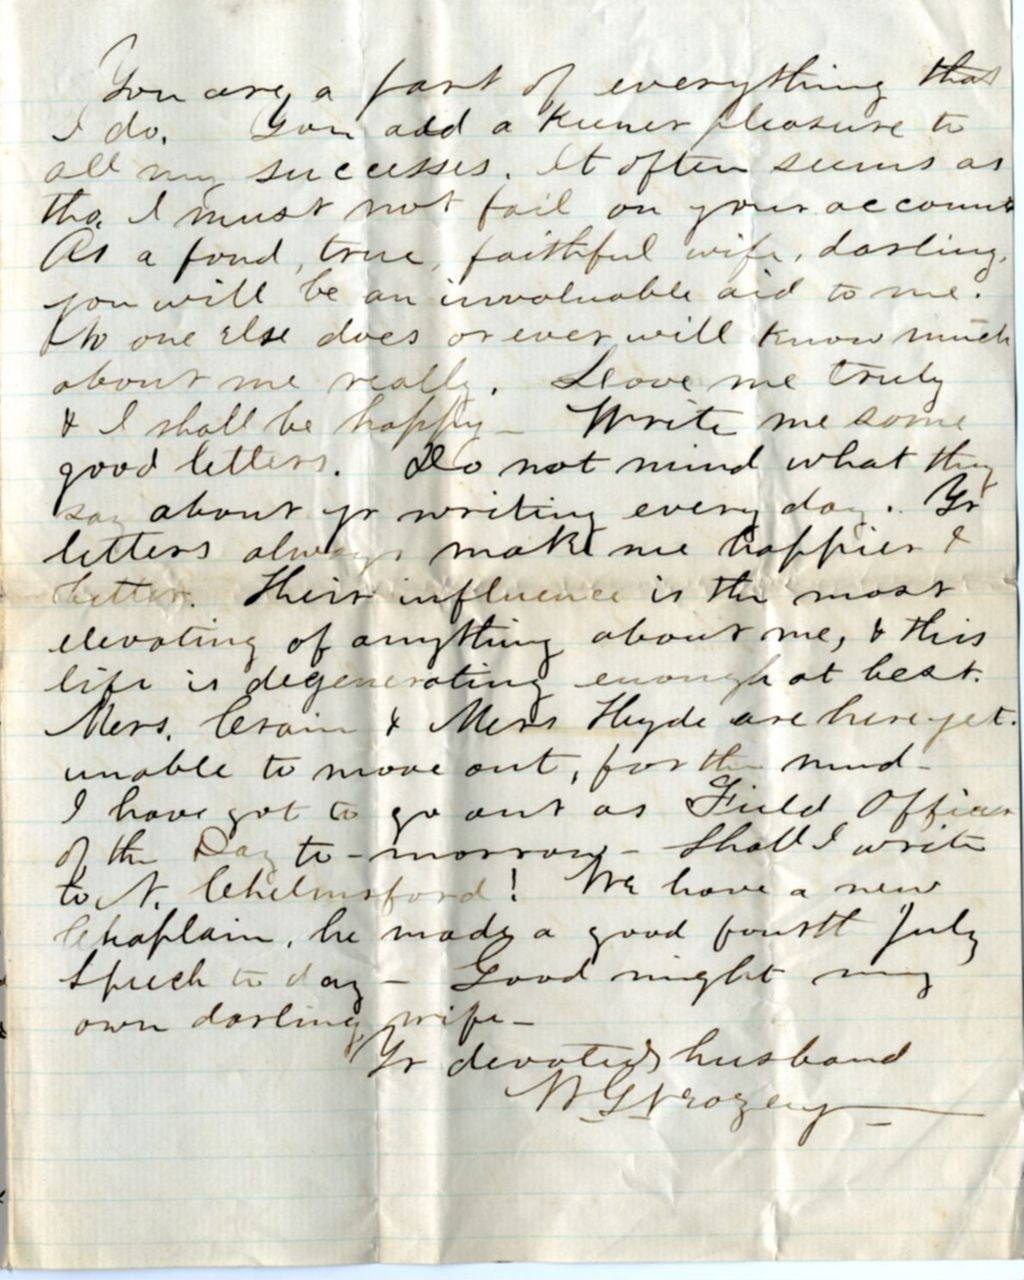 You are a part of everything that
I do. You add a keener pleasure to
all my successes. It often seems as
tho. I must not fail on your account
As a fond, true, faithful wife, darling,
you will be an invaluable aid to me.
No one else does or ever will know much
about me really. Love me truly
& I shall be happy - Write me some
good letters. Do not mind what they
say about yr writing every day. Yr
letters always make me happier &
better. Their influence is the most
elevating of anything about me, & this
life is degenerating enough at best.
Mers. Crain & Mers Hyde are here yet.
unable to move out, for the mud -
I have got to go out as Field Officer
of the Day to-morrow - Shall I write
to N. Chelmsford! We have a new
Chaplain, he made a good fourth July
Speech to day - Good night my
own darling wife -
Yr devoted husband